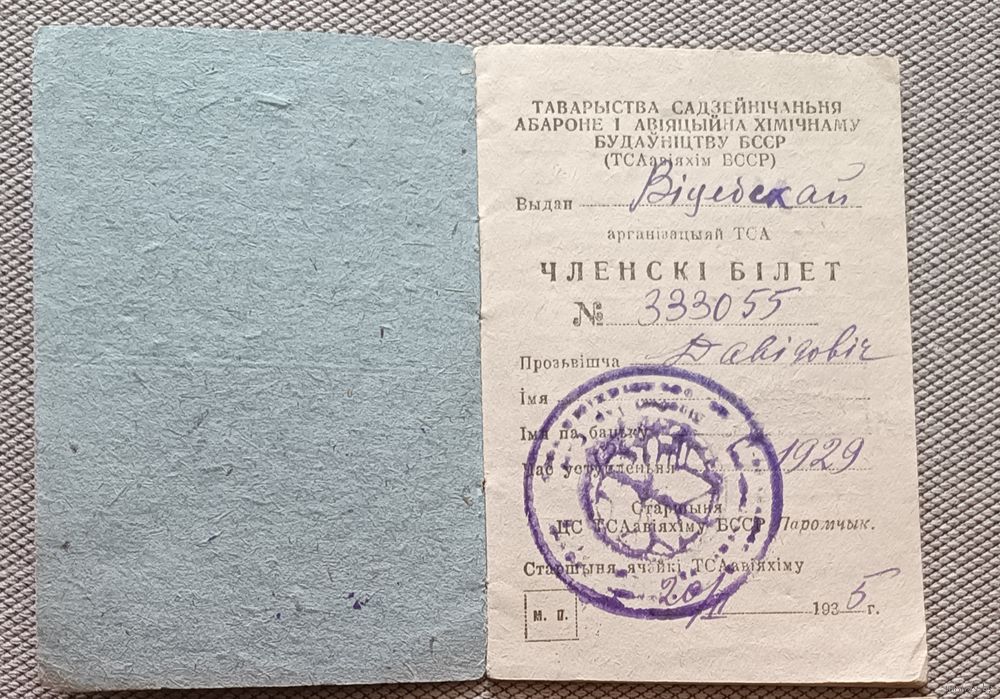 ТАВАРЫСТВА САДЗЕЙНІЧАНЬНЯ
АБАРОНЕ І АВІЯЦЫЙНА ХІМІЧНАМУ
БУДАЎНІЦТВУ БССР
(ТСАавіяхім БССР)
Выдан Віцебскай
арганізацыяй ТСА
ЧЛЕНСКІ БІЛЕТ
№ 333055
Прозьвішча Давідовіч
Імя
Імя па бацьку
Час уступленьня 1929
Старшыня
ЦС ТСАавіяхіму БССР Паромчык.
Старшыня ячэйкі ТСАавіяхіму
20/II 1935 г.
М. П.